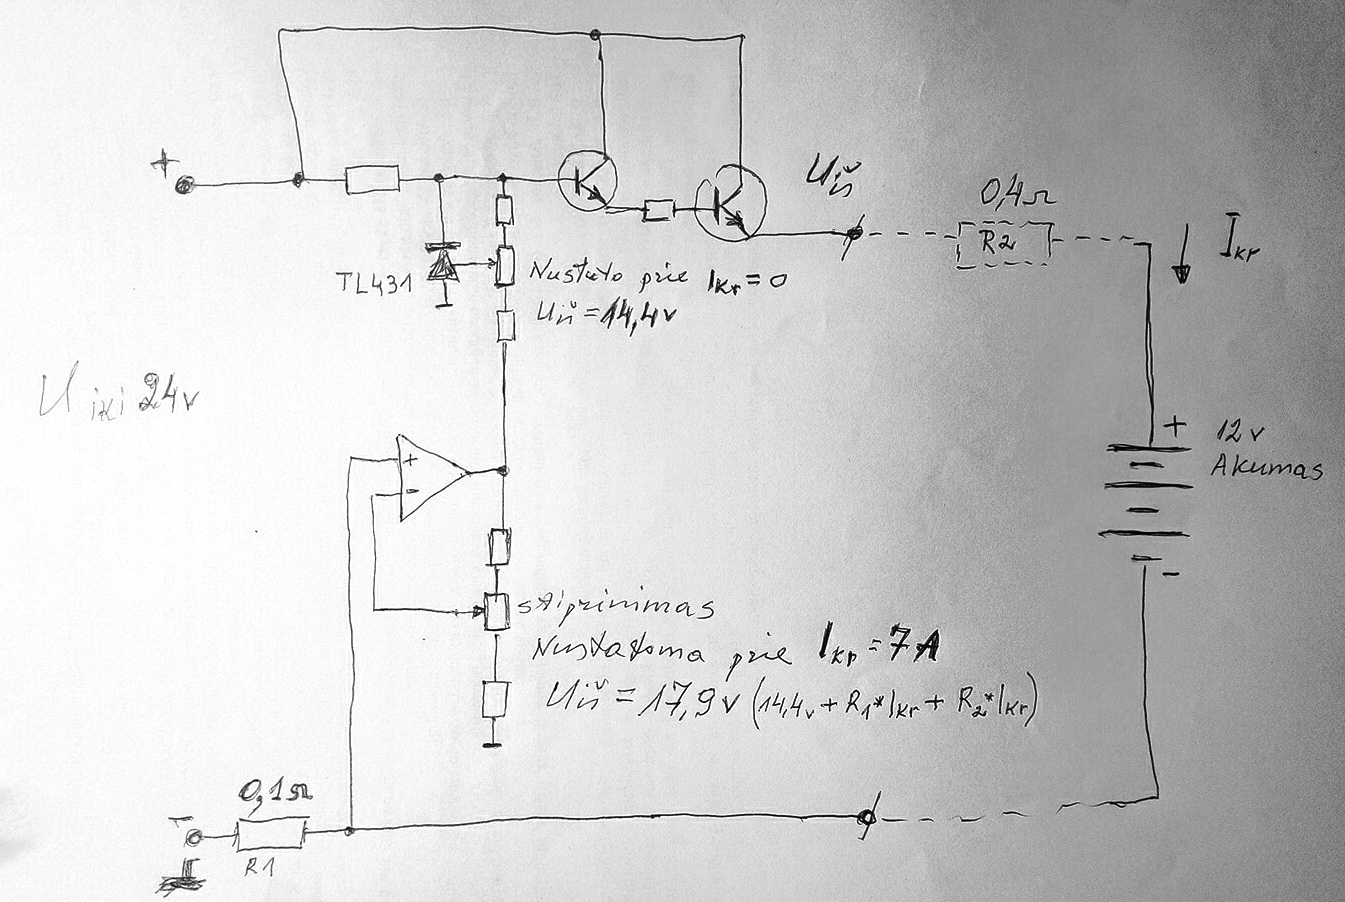 +
Uiš
0,4Ω
R2
Ikr
TL431
Nustato prie Ikr=0
Uiš=14,4v
U iki 24v
+
-
+
12v
Akumas
-
stiprinimas
Nustatoma prie Ikr=7A
Uiš=17,9v (14,4v+R1*Ikr+R2*Ikr)
0,1Ω
-
R1